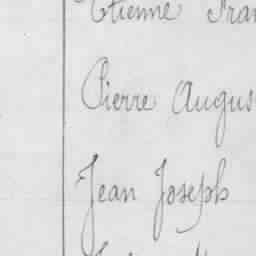 Etienne Fran
Pierre Augus
Jean Joseph